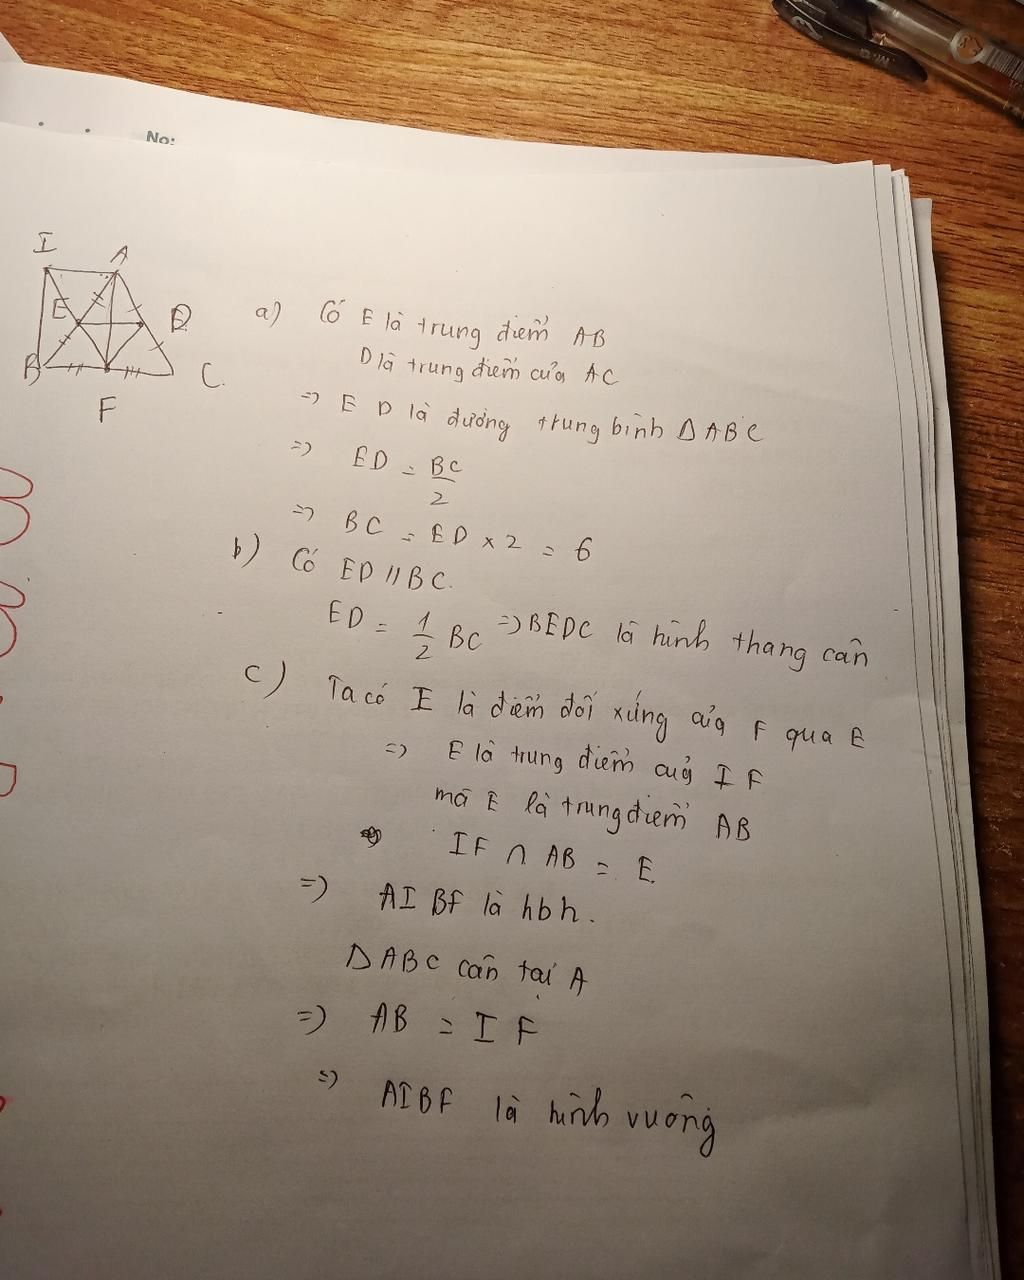 No:
I A
E D
B C.
F
a) Có E là trung điểm AB
D là trung điểm của AC
=> E D là đường trung bình ΔABC
=> ED = BC/2
=> BC = ED x 2 = 6
b) Có ED // BC.
ED = 1/2 BC => BEDC là hình thang cân
c) Ta có I là điểm đối xứng của F qua E
=> E là trung điểm của I F
mà E là trung điểm AB
IF ∩ AB = E.
=> AI BF là hbh.
ΔABC cân tại A
=> AB = I F
=> AIBF là hình vuông